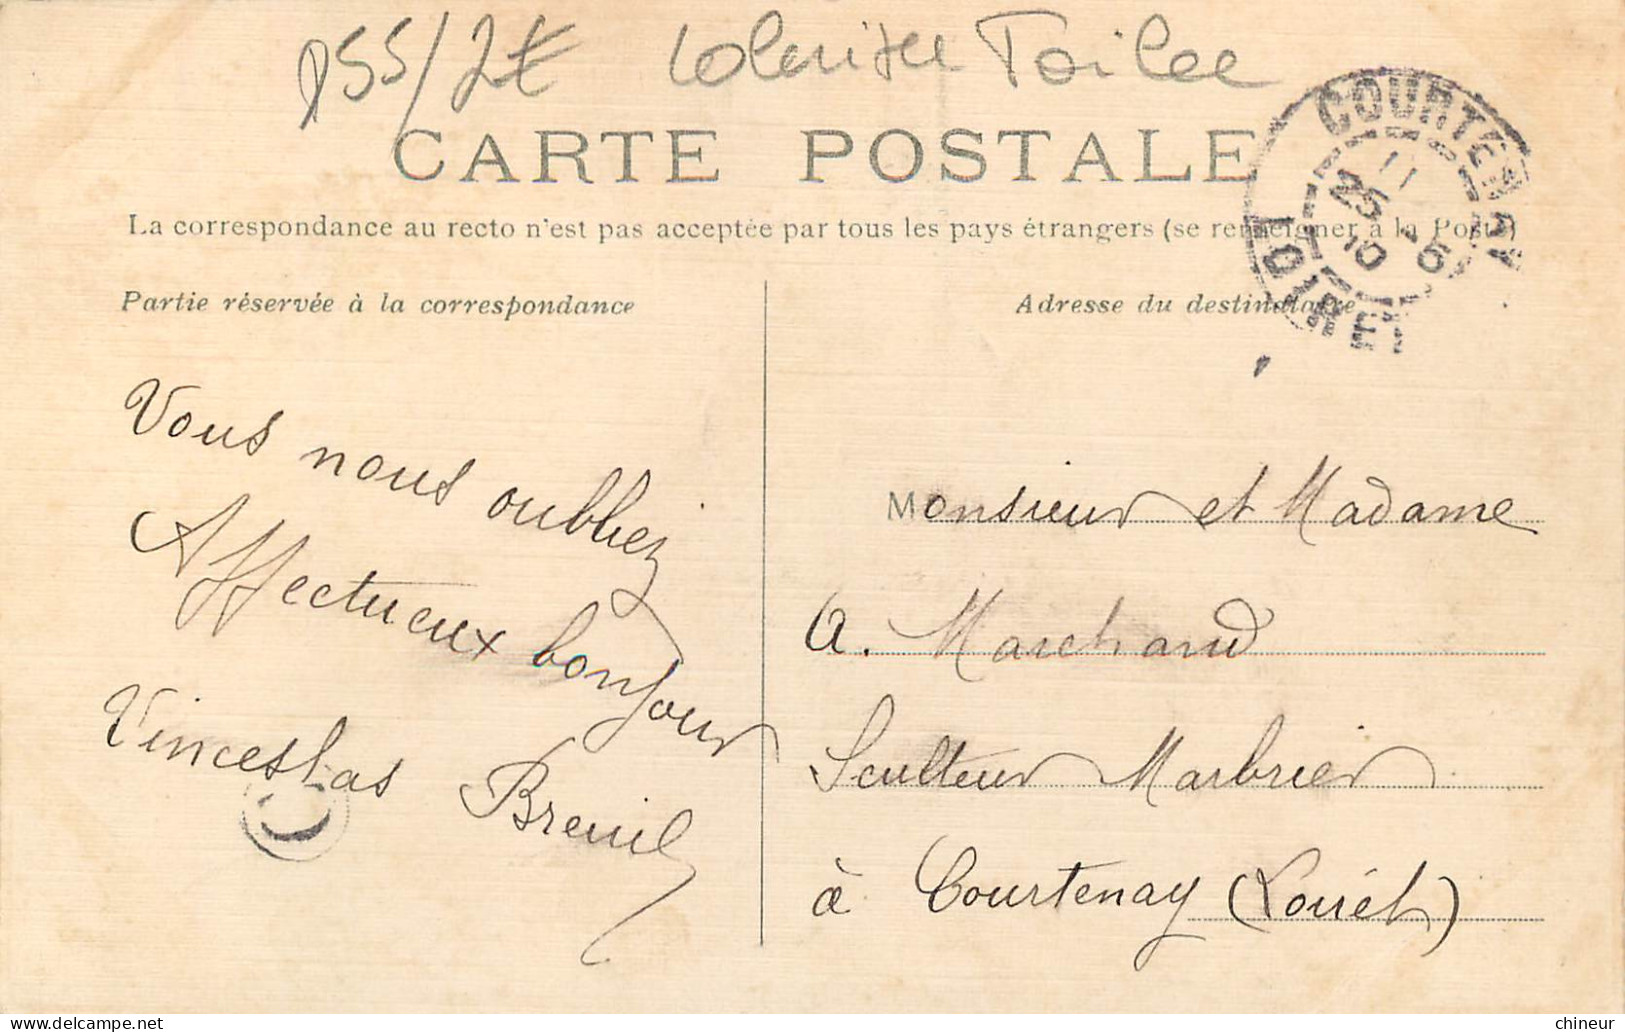 155/2€ colorisée Toilee
CARTE POSTALE
La correspondance au recto n'est pas acceptée par tous les pays étrangers (se renseigner à la Poste)
COURTENAY
11
25
10 - 5
LOIRET
Partie réservée à la correspondance
Vous nous oubliez
Affectueux bonjour
Vinceslas Breuil
Adresse du destinataire
Monsieur et Madame
A. Marchand
Sculteur Marbrier
à Courtenay (Loiret)
chineur